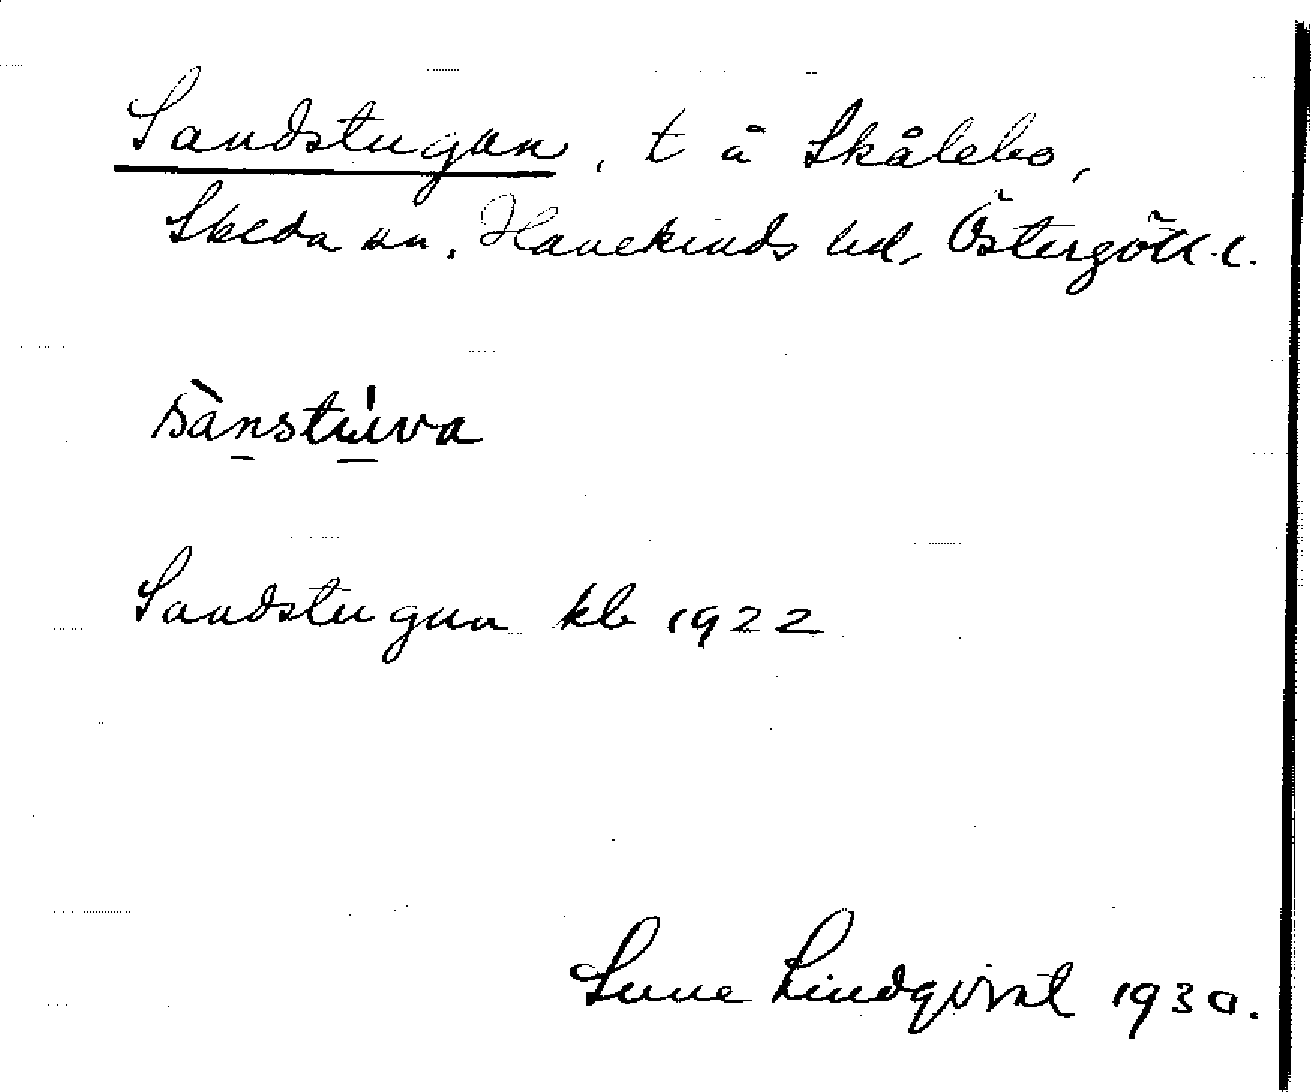 Sandstugan, t å Skålebo,
Skeda sn. Hanekinds hd, Östergötl. l.
sànstu̍va
Sandstugan kb 1922
Sune Lindqvist 1930.